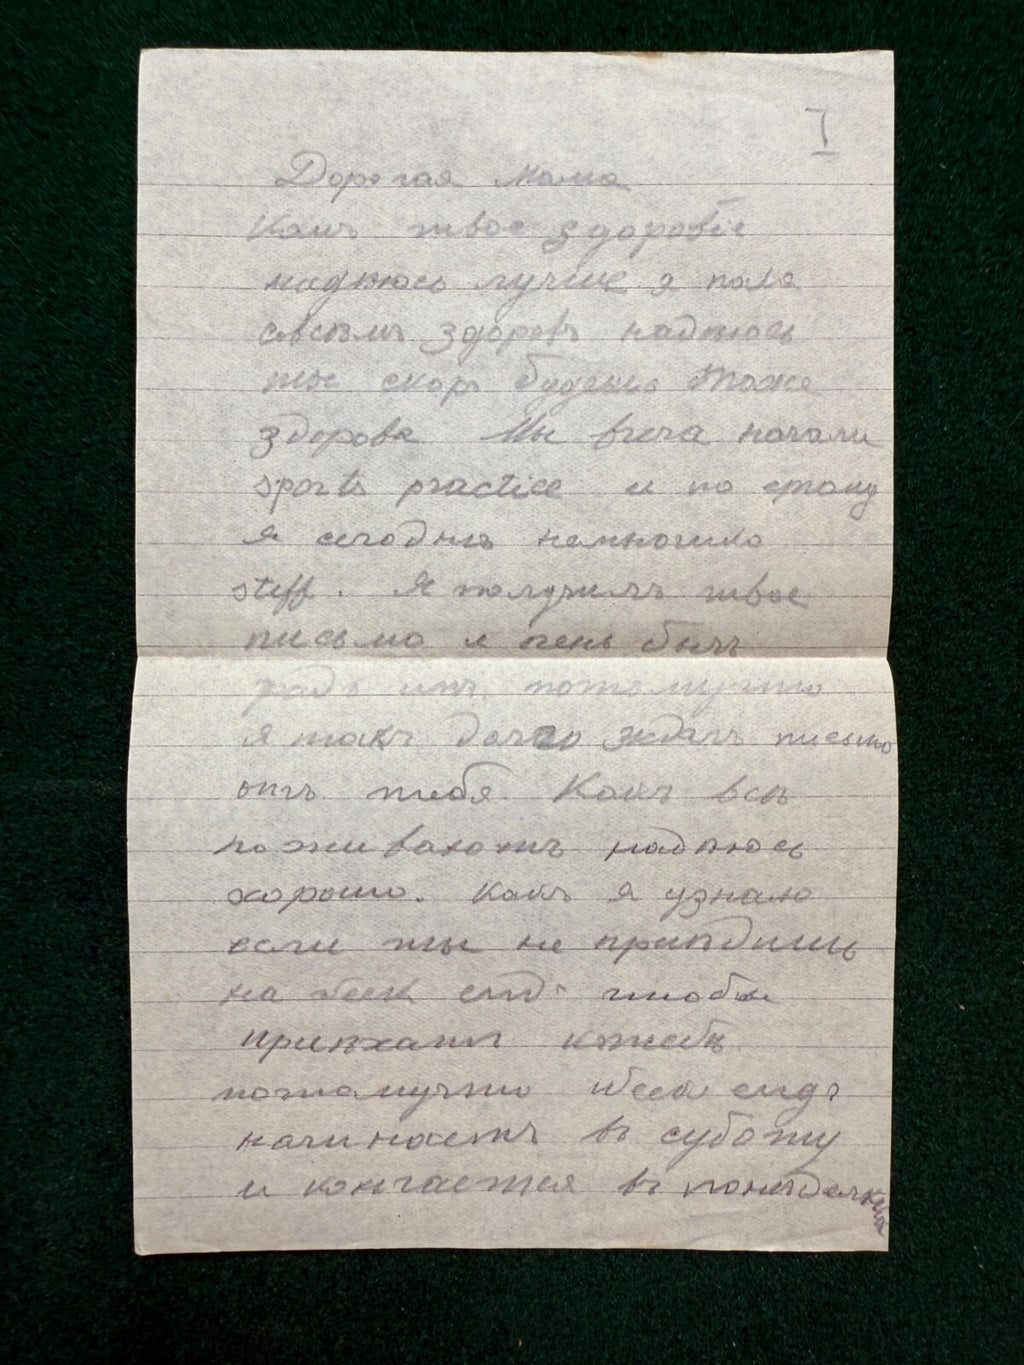 I
Дорогая мама
Какъ твое здоровiе
надѣюсь лучше я пока
совсѣмъ здоровъ надѣюсь
ты скоро будешь тоже
здорова Мы вчера начали
sports practice и по етому
я сегодня немножко
stiff. Я получилъ твое
письмо я очень былъ
радъ потомучто
я такъ долго ждалъ письмо
отъ тебя. Какъ всѣ
поживаютъ надѣюсь
хорошо. Какъ я узнаю
если ты не приѣдишь
на веек енд чтобы
приѣхать ктебѣ
потомучто веек ендъ
начинаетъ въ суботу
и кончается въ понѣдельника